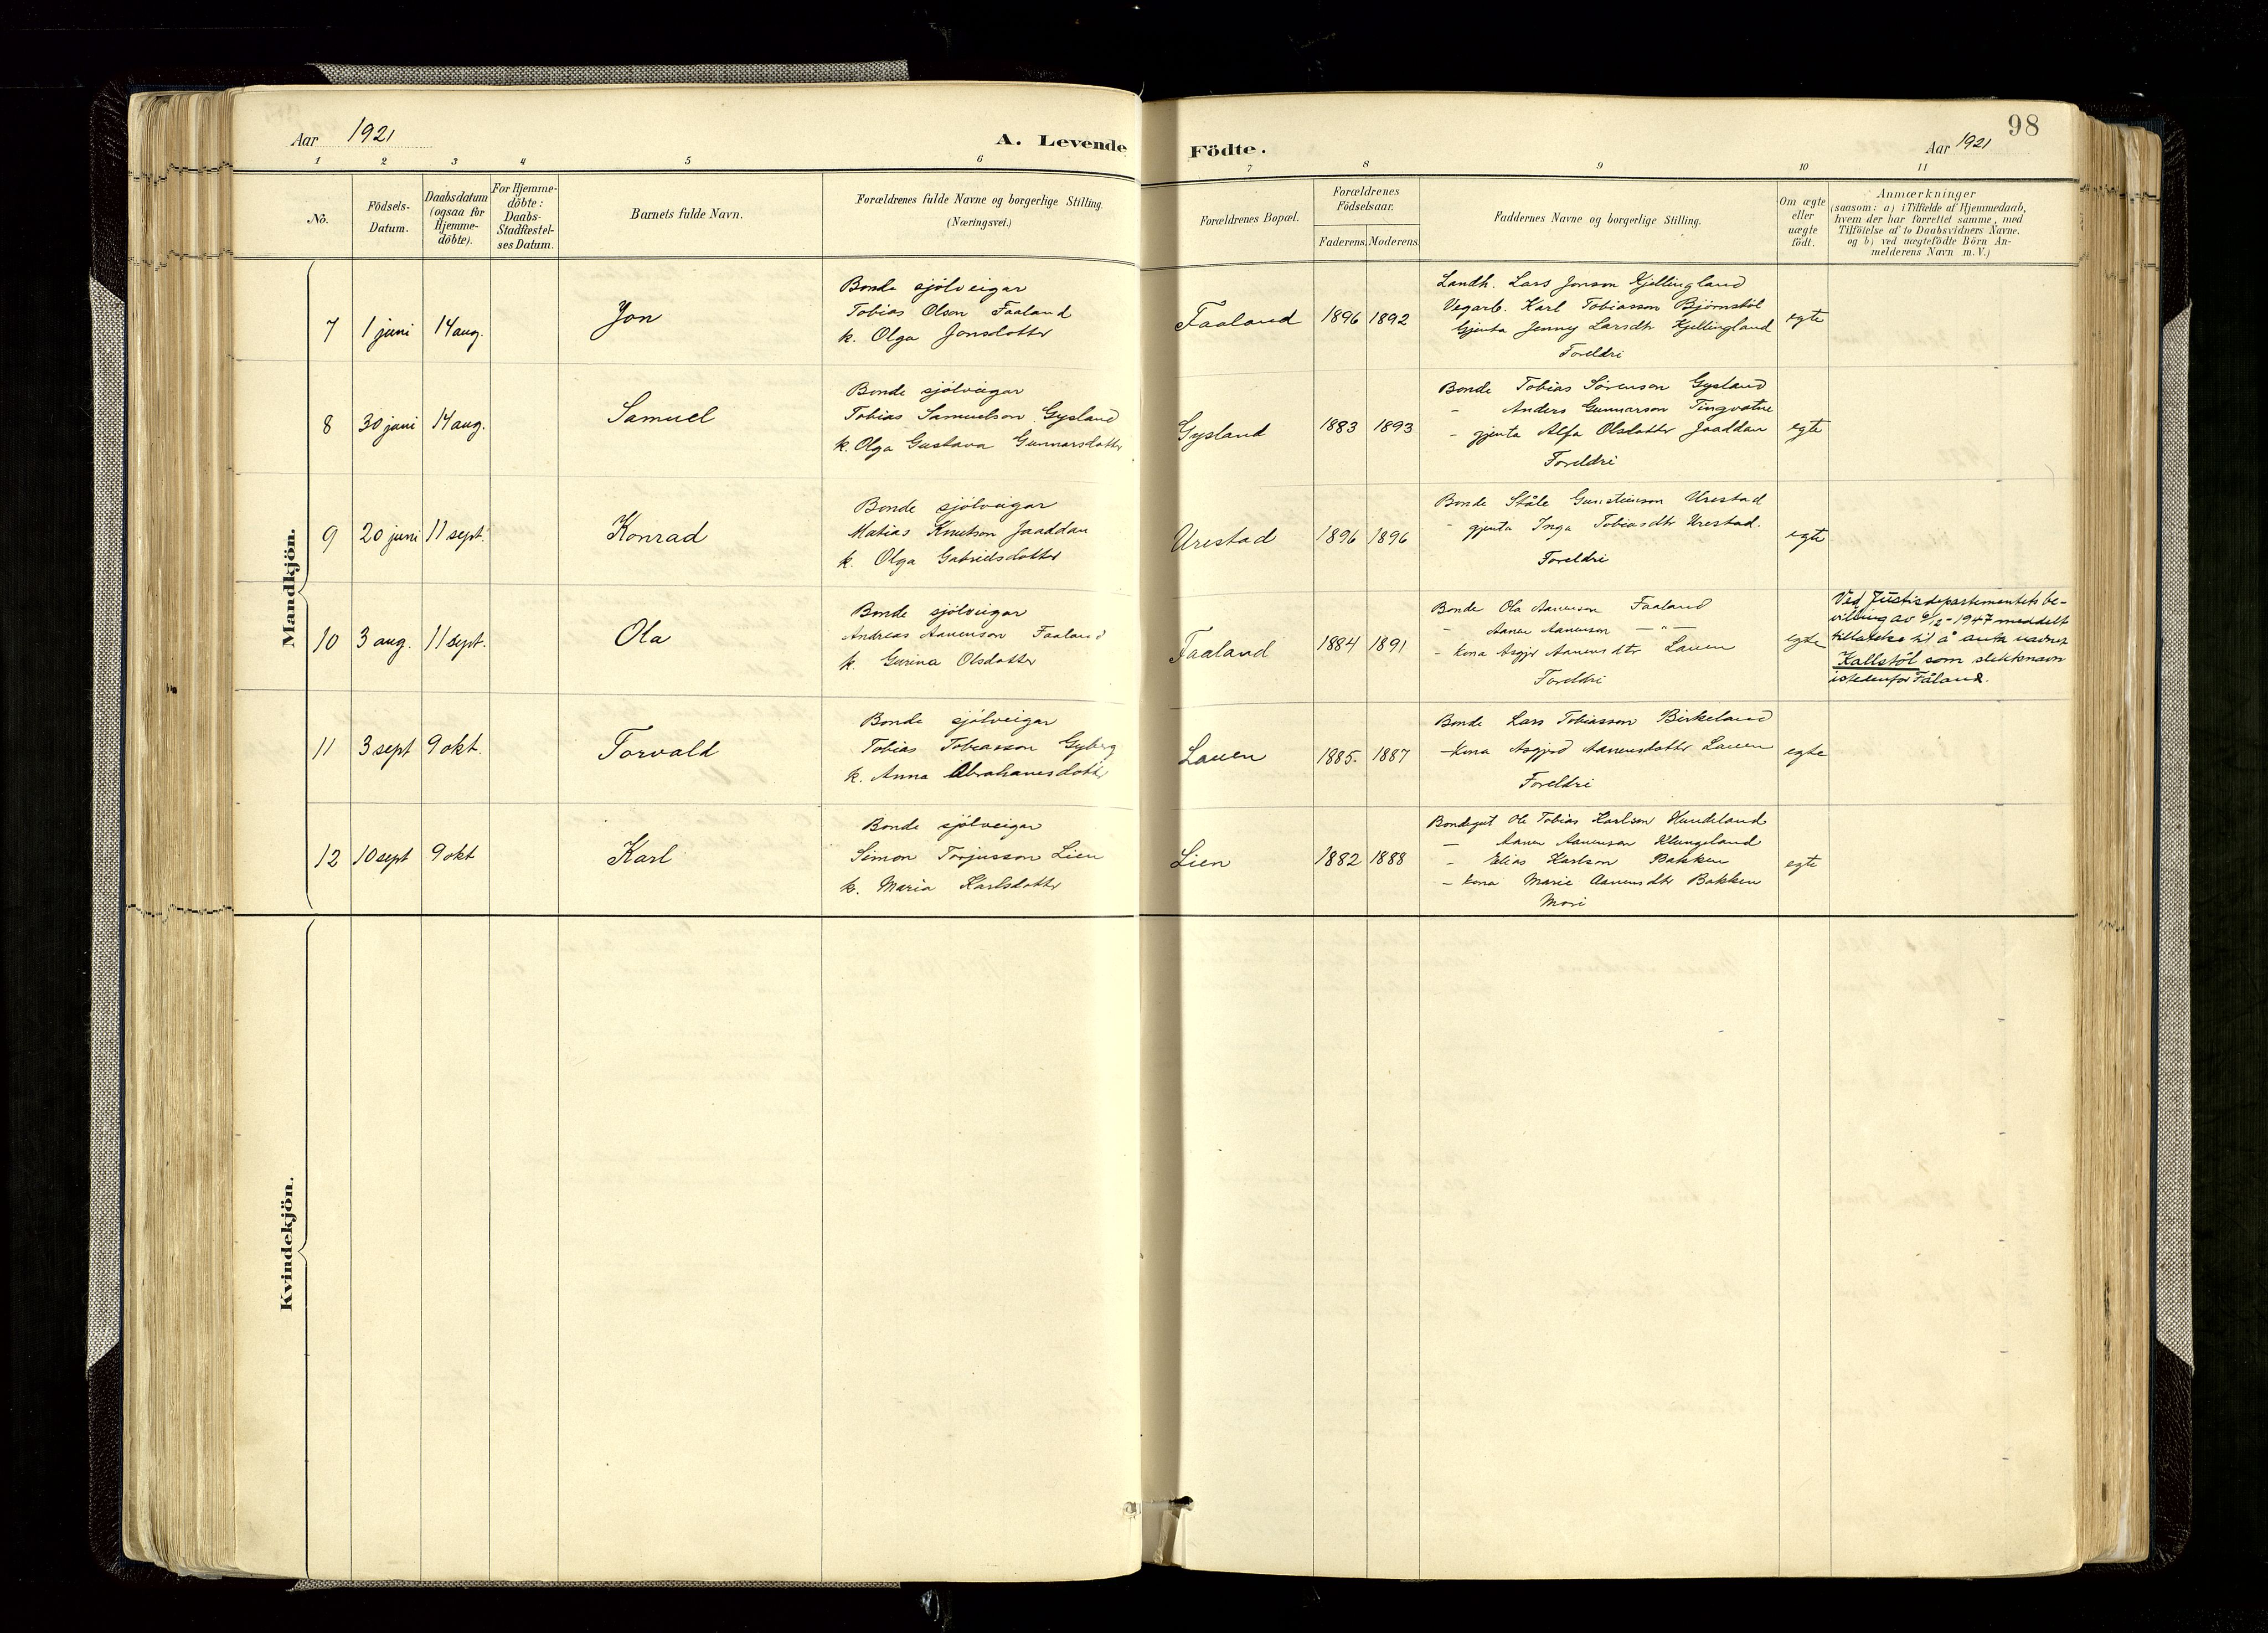 Aar 1921
A. Levende
Födte.
98
Aar 1921
1 2 3 4 5 6 7 8 9 10 11
No.
Födsels-
Datum.
Daabsdatum
(ogsaa for
Hjemme-
döbte).
For Hjemme-
döbte:
Daabs-
Stadfæstel-
ses Datum.
Barnets fulde Navn.
Forældrenes fulde Navne og borgerlige Stilling.
(Næringsvei.)
Forældrenes Bopæl.
Forældrenes
Födselsaar.
Faderens. Moderens.
Faddernes Navne og borgerlige Stilling.
Om ægte
eller
uægte
födt.
Anmærkninger
(saasom: a) i Tilfælde af Hjemmedaab,
hvem der har forrettet samme, med
Tilföielse af to Daabsvidners Navne.
og b) ved uægtefödte Börn An-
melderens Navn m. V.)
Mandkjön.
7 1 juni 14 aug. Jon
Bonde sjölveigar
Tobias Olson Faaland
k. Olga Jonsdotter
Faaland 1896 1892
Landh. Lars Jonson Kjellingland
Vegarb. Karl Tobiasson Bjørnstöl
Gjenta Jenny Larsdtr Kjellingland
Foreldri
egte
8 30 juni 14 aug. Samuel
Bonde sjölveigar
Tobias Samuelson Gysland
k. Olga Gustava Gunnarsdotter
Gysland 1883 1893
Bonde Tobias Sørenson Gysland
- Anders Gunnarson Tingvatne
- gjenta Alfa Olsdotter Jaaddan
Foreldri
egte
9 20 juni 11 sept. Konrad
Bonde sjölveigar
Matias Knutson Jaaddan
k. Olga Gabrielsdotter
Urestad 1896 1896
Bonde Ståle Gunsteinson Urestad
- gjenta Inga Tobiasdtr Urestad.
Foreldri
egte
10 3 aug. 11 sept. Ola
Bonde sjölveigar
Andreas Aanenson Faaland
k. Gurina Olsdotter
Faaland 1884 1891
Bonde Ola Aanenson Faaland
- Aanen Aanenson — " —
- kona Asgjer Aanensdtr Lauen
Foreldri
egte
Ved Justisdepartementets be-
villing av 6/12-1947 meddelt
tillatelse til å anta navnet
Kallstöl som slektsnavn
istedenfor Fåland.
11 3 sept 9 okt. Torvald
Bonde sjölveigar
Tobias Tobiasson Gyberg
k. Anna Abrahamsdotter
Lauen 1885. 1887
Bonde Lars Tobiasson Birkeland
- kona Asgjerd Aanensdotter Lauen
Foreldri
egte
12 10 sept 9 okt Karl
Bonde sjölveigar
Simon Torjusson Lien
k. Maria Karlsdotter
Lien 1882 1888
Bondegut Ole Tobias Karlson Hundeland
— Aanen Aanenson Klungeland
- Elias Karlson Bakken
- kona Marie Aanensdtr Bakken
Mori
egte
Kvindekjön.